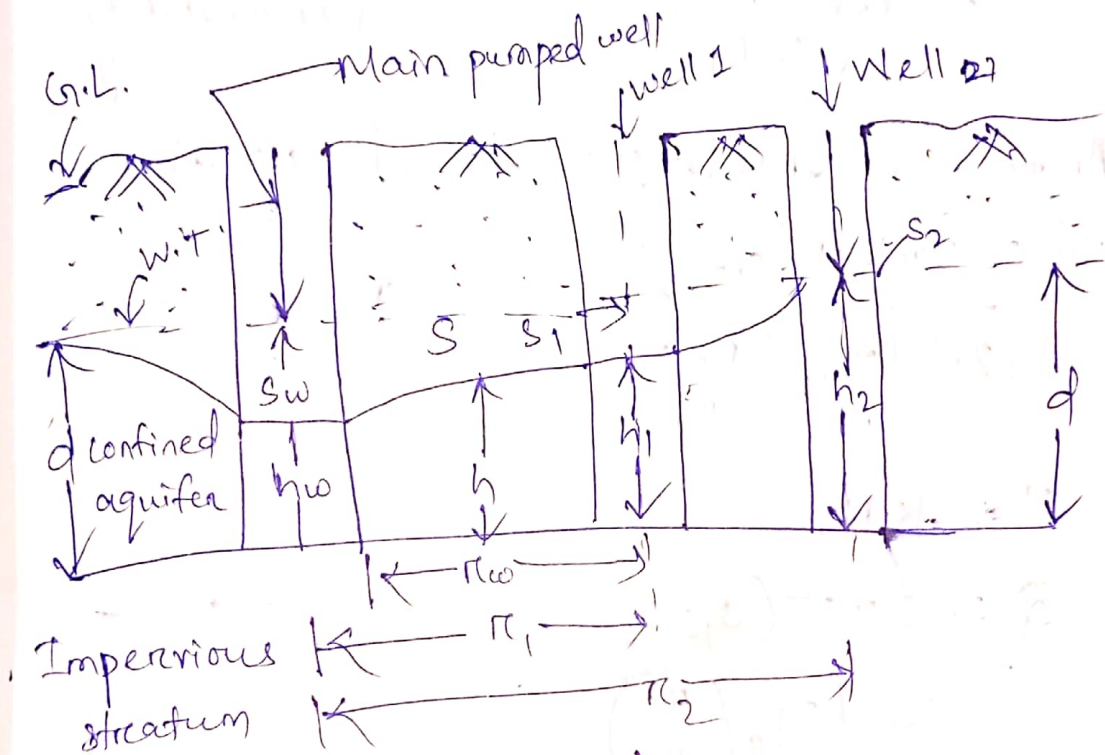 Main pumped well
G.L.
Well 1
Well 2
W.T.
S2
S
S1
Sw
d confined
aquifer
hw
h
h1
h2
d
rw
r1
r2
Impervious
streatum